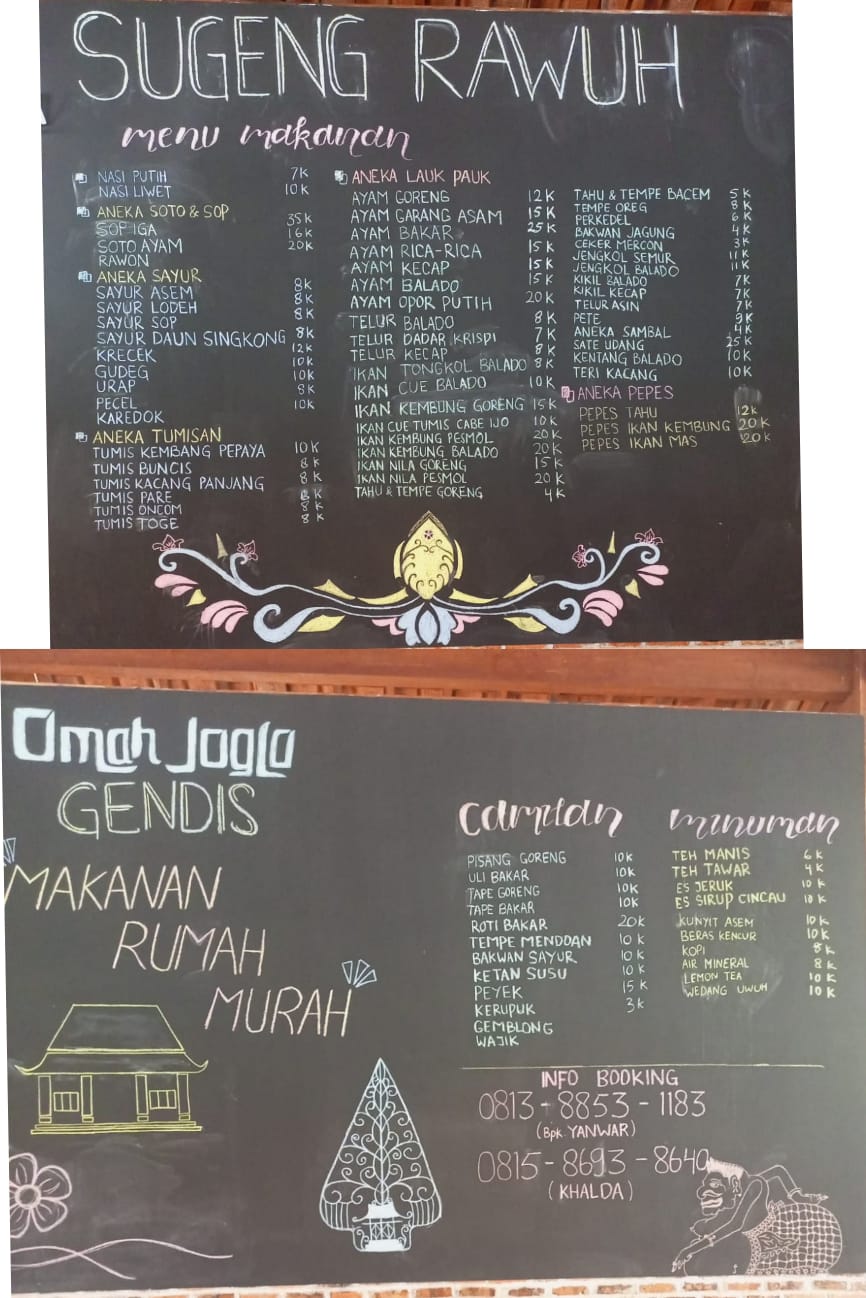 SUGENG RAWUH
menu makanan
NASI PUTIH 7K
NASI LIWET 10K
ANEKA SOTO & SOP
SOP IGA 35K
SOTO AYAM 16K
RAWON 20K
ANEKA SAYUR
SAYUR ASEM 8K
SAYUR LODEH 8K
SAYUR SOP 8K
SAYUR DAUN SINGKONG 8K
KRECEK 12K
GUDEG 10K
URAP 10K
PECEL 8K
KAREDOK 10K
ANEKA TUMISAN
TUMIS KEMBANG PEPAYA 10K
TUMIS BUNCIS 8K
TUMIS KACANG PANJANG 8K
TUMIS PARE 8K
TUMIS ONCOM 8K
TUMIS TOGE 8K
ANEKA LAUK PAUK
AYAM GORENG 12K
AYAM GARANG ASAM 15K
AYAM BAKAR 25K
AYAM RICA-RICA 15K
AYAM KECAP 15K
AYAM BALADO 15K
AYAM OPOR PUTIH 20K
TELUR BALADO 8K
TELUR DADAR KRISPI 7K
TELUR KECAP 8K
IKAN TONGKOL BALADO 8K
IKAN CUE BALADO 10K
IKAN KEMBUNG GORENG 15K
IKAN CUE TUMIS CABE IJO 10K
IKAN KEMBUNG PESMOL 20K
IKAN KEMBUNG BALADO 20K
IKAN NILA GORENG 15K
IKAN NILA PESMOL 20K
TAHU & TEMPE GORENG 4K
TAHU & TEMPE BACEM 5K
TEMPE OREG 8K
PERKEDEL 6K
BAKWAN JAGUNG 4K
CEKER MERCON 3K
JENGKOL SEMUR 11K
JENGKOL BALADO 11K
KIKIL BALADO 7K
KIKIL KECAP 7K
TELUR ASIN 7K
PETE 9K
ANEKA SAMBAL 4K
SATE UDANG 25K
KENTANG BALADO 10K
TERI KACANG 10K
ANEKA PEPES
PEPES TAHU 12K
PEPES IKAN KEMBUNG 20K
PEPES IKAN MAS 20K
Omah Joglo
GENDIS
"MAKANAN
RUMAH
MURAH"
Camilan
PISANG GORENG 10K
ULI BAKAR 10K
TAPE GORENG 10K
TAPE BAKAR 10K
ROTI BAKAR 20K
TEMPE MENDOAN 10K
BAKWAN SAYUR 10K
KETAN SUSU 10K
PEYEK 15K
KERUPUK 3K
GEMBLONG
WAJIK
minuman
TEH MANIS 6K
TEH TAWAR 4K
ES JERUK 10K
ES SIRUP CINCAU 10K
KUNYIT ASEM 10K
BERAS KENCUR 10K
KOPI 8K
AIR MINERAL 8K
LEMON TEA 10K
WEDANG UWUH 10K
INFO BOOKING
0813-8853-1183
(Bpk YANWAR)
0815-8693-8640
(KHALDA)